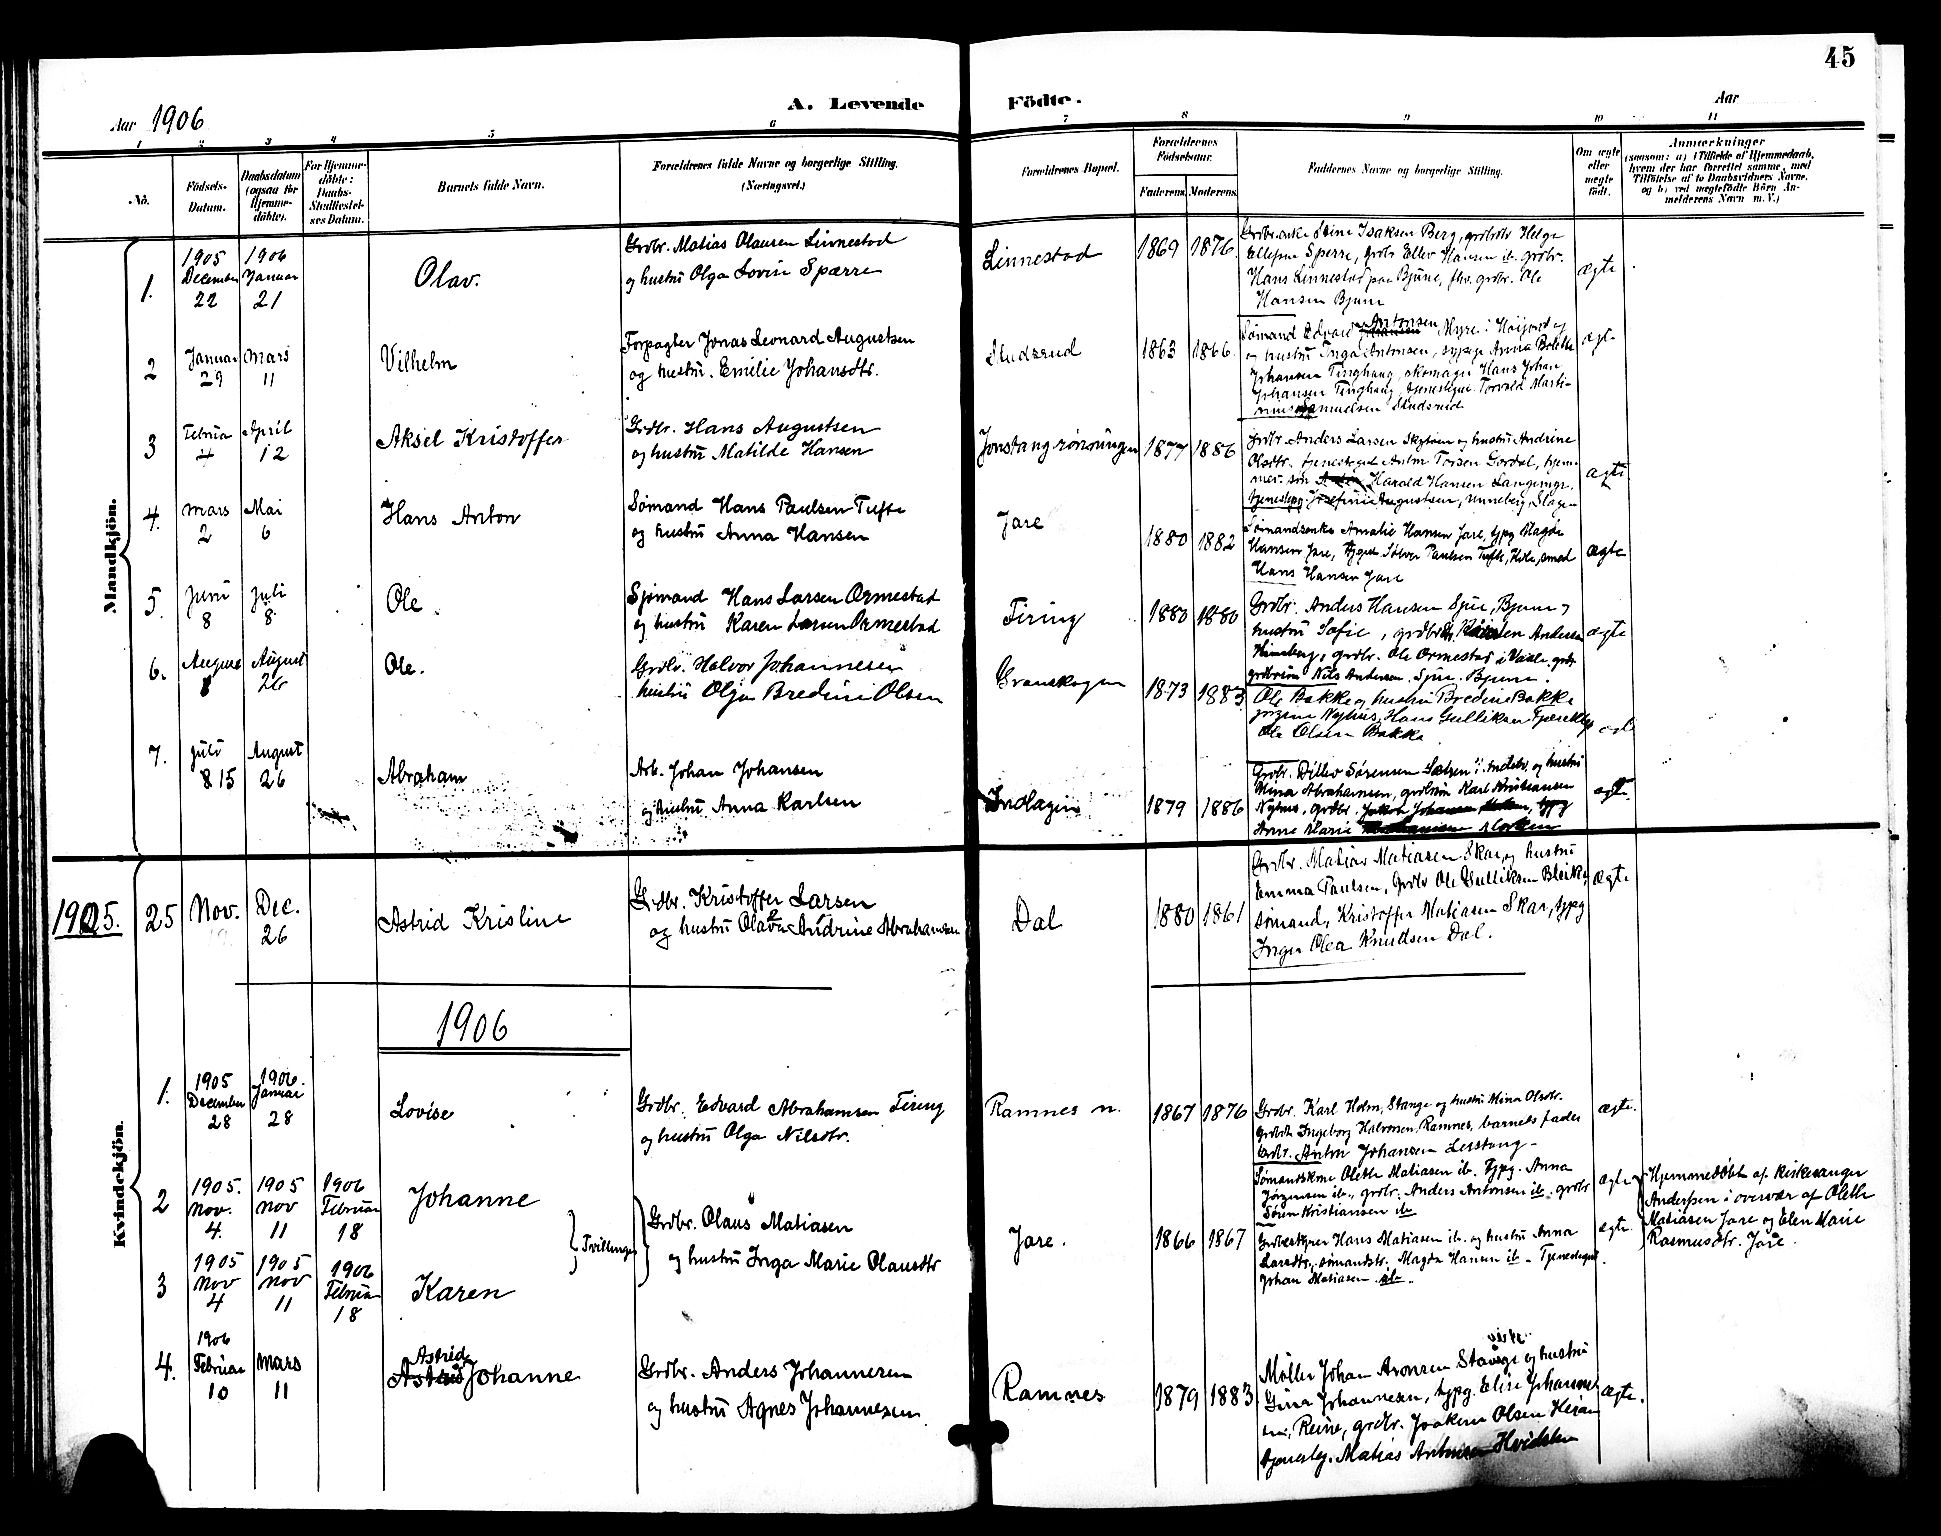 45
Aar 1906
A. Levende Födte.
Aar
1 2 3 4 5 6 7 8 9 10 11
No.
Födsels-
Datum.
Daabsdatum
(ogsaa for
Hjemme-
döbte).
For Hjemme-
döbte:
Daabs-
Stadfæstel-
ses Datum.
Barnets fulde Navn.
Forældrenes fulde Navne og borgerlige Stilling.
(Næringsvei.)
Forældrenes Bopæl.
Forældrenes
Födselsaar.
Faderens. Moderens.
Faddernes Navne og borgerlige Stilling.
Om ægte
eller
uægte
født.
Anmærkninger
(saasom: a) i Tilfælde af Hjemmedaab,
hvem der har forrettet samme, med
Tilföielse af to Daabsvidners Navne,
og b) ved uægtefödte Börn An-
melderens Navn m. V.)
Mandkjön.
1. 1905 December 22
1906 Januar 21
Olav.
Grdbr. Matias Olausen Linnestad
og hustru Olga Lovise Spærre
Linnestad
1869 1876
Isaksen Berg, Helge
Ellefsen Sperre, grdbr Ellev Hansen ib. grdbr.
Hans Linnestad paa Bjune, fhv. grdbr. Ole
Hansen Bjune
ægte
2 Januar 29
Mars 11
Vilhelm
Forpagter Jonas Leonard Augustsen
og hustru. Emilie Johansdtr.
Studsrud
1863 1866
Sømand Edvard Antonsen, Myre i Høijord og
og hustru Inga Antonsen, typge Anna Bolette
Johansen Tinghaug, skomager Hans Johan
Johansen Tinghaug, tjenestegut Torvald Marti-
nius Samuelsen Studsrud
ægte
3 Februar 4
April 12
Aksel Kristoffer
Grdbr. Hans Augustsen
og hustru Matilde Hansen
1877 1886
Grdbr Anders Larsen og hustru Andrine
Olsdtr. tjenestegut Anton
Harald Hansen
tjenestepg Josefine Augustsen, Unneberg, Slagen
ægte
4. Mars 2
Mai 6
Hans Anton
Sømand Hans Paulsen Tufte
og hustru Anna Hansen
Jare
1880 1882
Sømandsenke Amalie Hansen Jare, typg Magda
Hansen Jare, Sølver Paulsen Tufte, smed
Hans Hansen Jare
ægte
5. Juni 8
Juli 8.
Ole.
Sjømand Hans Larsen Ormestad
og hustru Karen Larsen Ormestad
Firing
1880 1880
Grdbr. Anders Hansen Sjue, Bjune og
hustru Sofie, Andersen
Himberg, grdbr. Ole Ormestad i Vaale,
Nils Andersen. Sjue. Bjune.
ægte
6. August
August 26
Ole.
Grdbr. Halvor Johannesen
hustru Olga Bredine Olsen
Granskogen
1873 1883.
Ole Bakke og hustru Bredine Bakke
Nyhus, Hans Gulliksen
Ole Olsen Bakke
ægte
7. Juli 8 15
August 26
Abraham
Arb. Johan Johansen
og hustru Anna Karlsen
Indlagen
1879 1886
Grdbr. Ditlev Sørensen og hustru
Mina Abrahamsen, Karl Kristiansen
Nyhus, grdbr. typg
Anne Marie
ægte
Kvindekjön.
1905. 25 Nov.
Dec. 26
Astrid Kristine
Grdbr. Kristoffer Larsen
og hustru Olava Andrine Abrahamsen
Dal
1880 1861
Grdbr. Matias Matiasen Skar, og hustru
Emma Paulsen, Grdbr Ole Gulliksen Bleike
sømand, Kristoffer Matiasen Skar, typg
Inga Olea Knudtsen Dal.
ægte
1906
1. 1905 December 28
1906. Januar 28
Lovise
Grdbr. Edvard Abrahamsen Firing
og hustru Olga Nilsdtr.
Ramnes n.
1867 1876
Grdbr. Karl Holm, Stange og hustru Mina Olsdtr.
Ingeborg Halvorsen, Ramnes, barnets fader
Grdbr. Anton Johansen Lerstang
ægte.
2 1905. Nov. 4.
1905 Nov 11
1906 Februar 18
Johanne
Tvillinger
Grdbr. Olaus Matiasen
og hustru Inga Marie Olausdtr
Jare.
1866 1867
Sømandskone Olette Matiasen ib. typg. Anna
Jørgensen ib., grdbr. Anders Antonsen ib. grdbr
Søren Kristiansen ib
ægte
Hjemmedøbt af kirkesanger
Anderssen i overvær af Olette
Matiasen Jare og Elen Marie
Rasmusdtr. Jare.
3 1905 Nov 4
1905 Nov 11
1906 Februar 18
Karen
Gaardbestyrer Hans Matiasen ib. og hustru Anna
Larsdtr., sømandsdtr. Magda Hansen ib. Tjenestegut
Johan Matiasen ib.
ægte
4. 1906 Februar 10
Mars 11
Astrid Johanne
Grdbr. Anders Johannesen
og hustru Agnes Johannesen
Ramnes
1879 1883.
Møller Johan Aronsen Stange og hustru
Gina Johannesen, typg. Elise Johannes-
sen, Reine, grdbr. Joakim Olsen
tjenestej. Matias Antonsen Hvidsten
ægte.